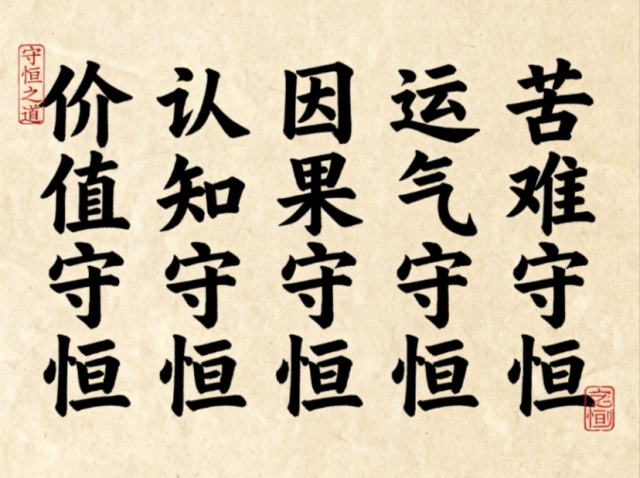 苦难守恒
运气守恒
因果守恒
认知守恒
价值守恒
守恒之道